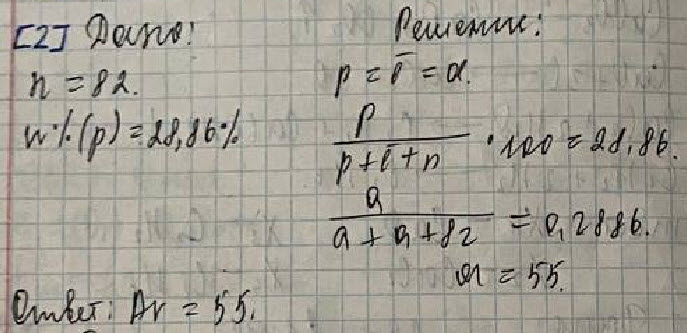 [2] Дано:
n = 82.
w%(p) = 28,86%
Решение:
p = e̅ = a.
p / (p + e̅ + n) · 100 = 28,86.
a / (a + a + 82) = 0,2886.
a = 55.
Ответ: Ar = 55.